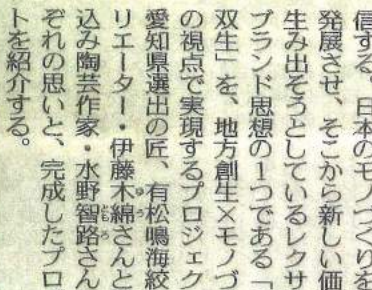 信する。日本のモノづくりを
発展させ、そこから新しい価
生み出そうとしているレクサ
ブランド思想の1つである「
双生」を、地方創生×モノづ
の視点で実現するプロジェク
愛知県選出の匠、有松鳴海絞
リエーター・伊藤木綿さんと
込み陶芸作家・水野智路さん
ぞれの思いと、完成したプロ
トを紹介する。